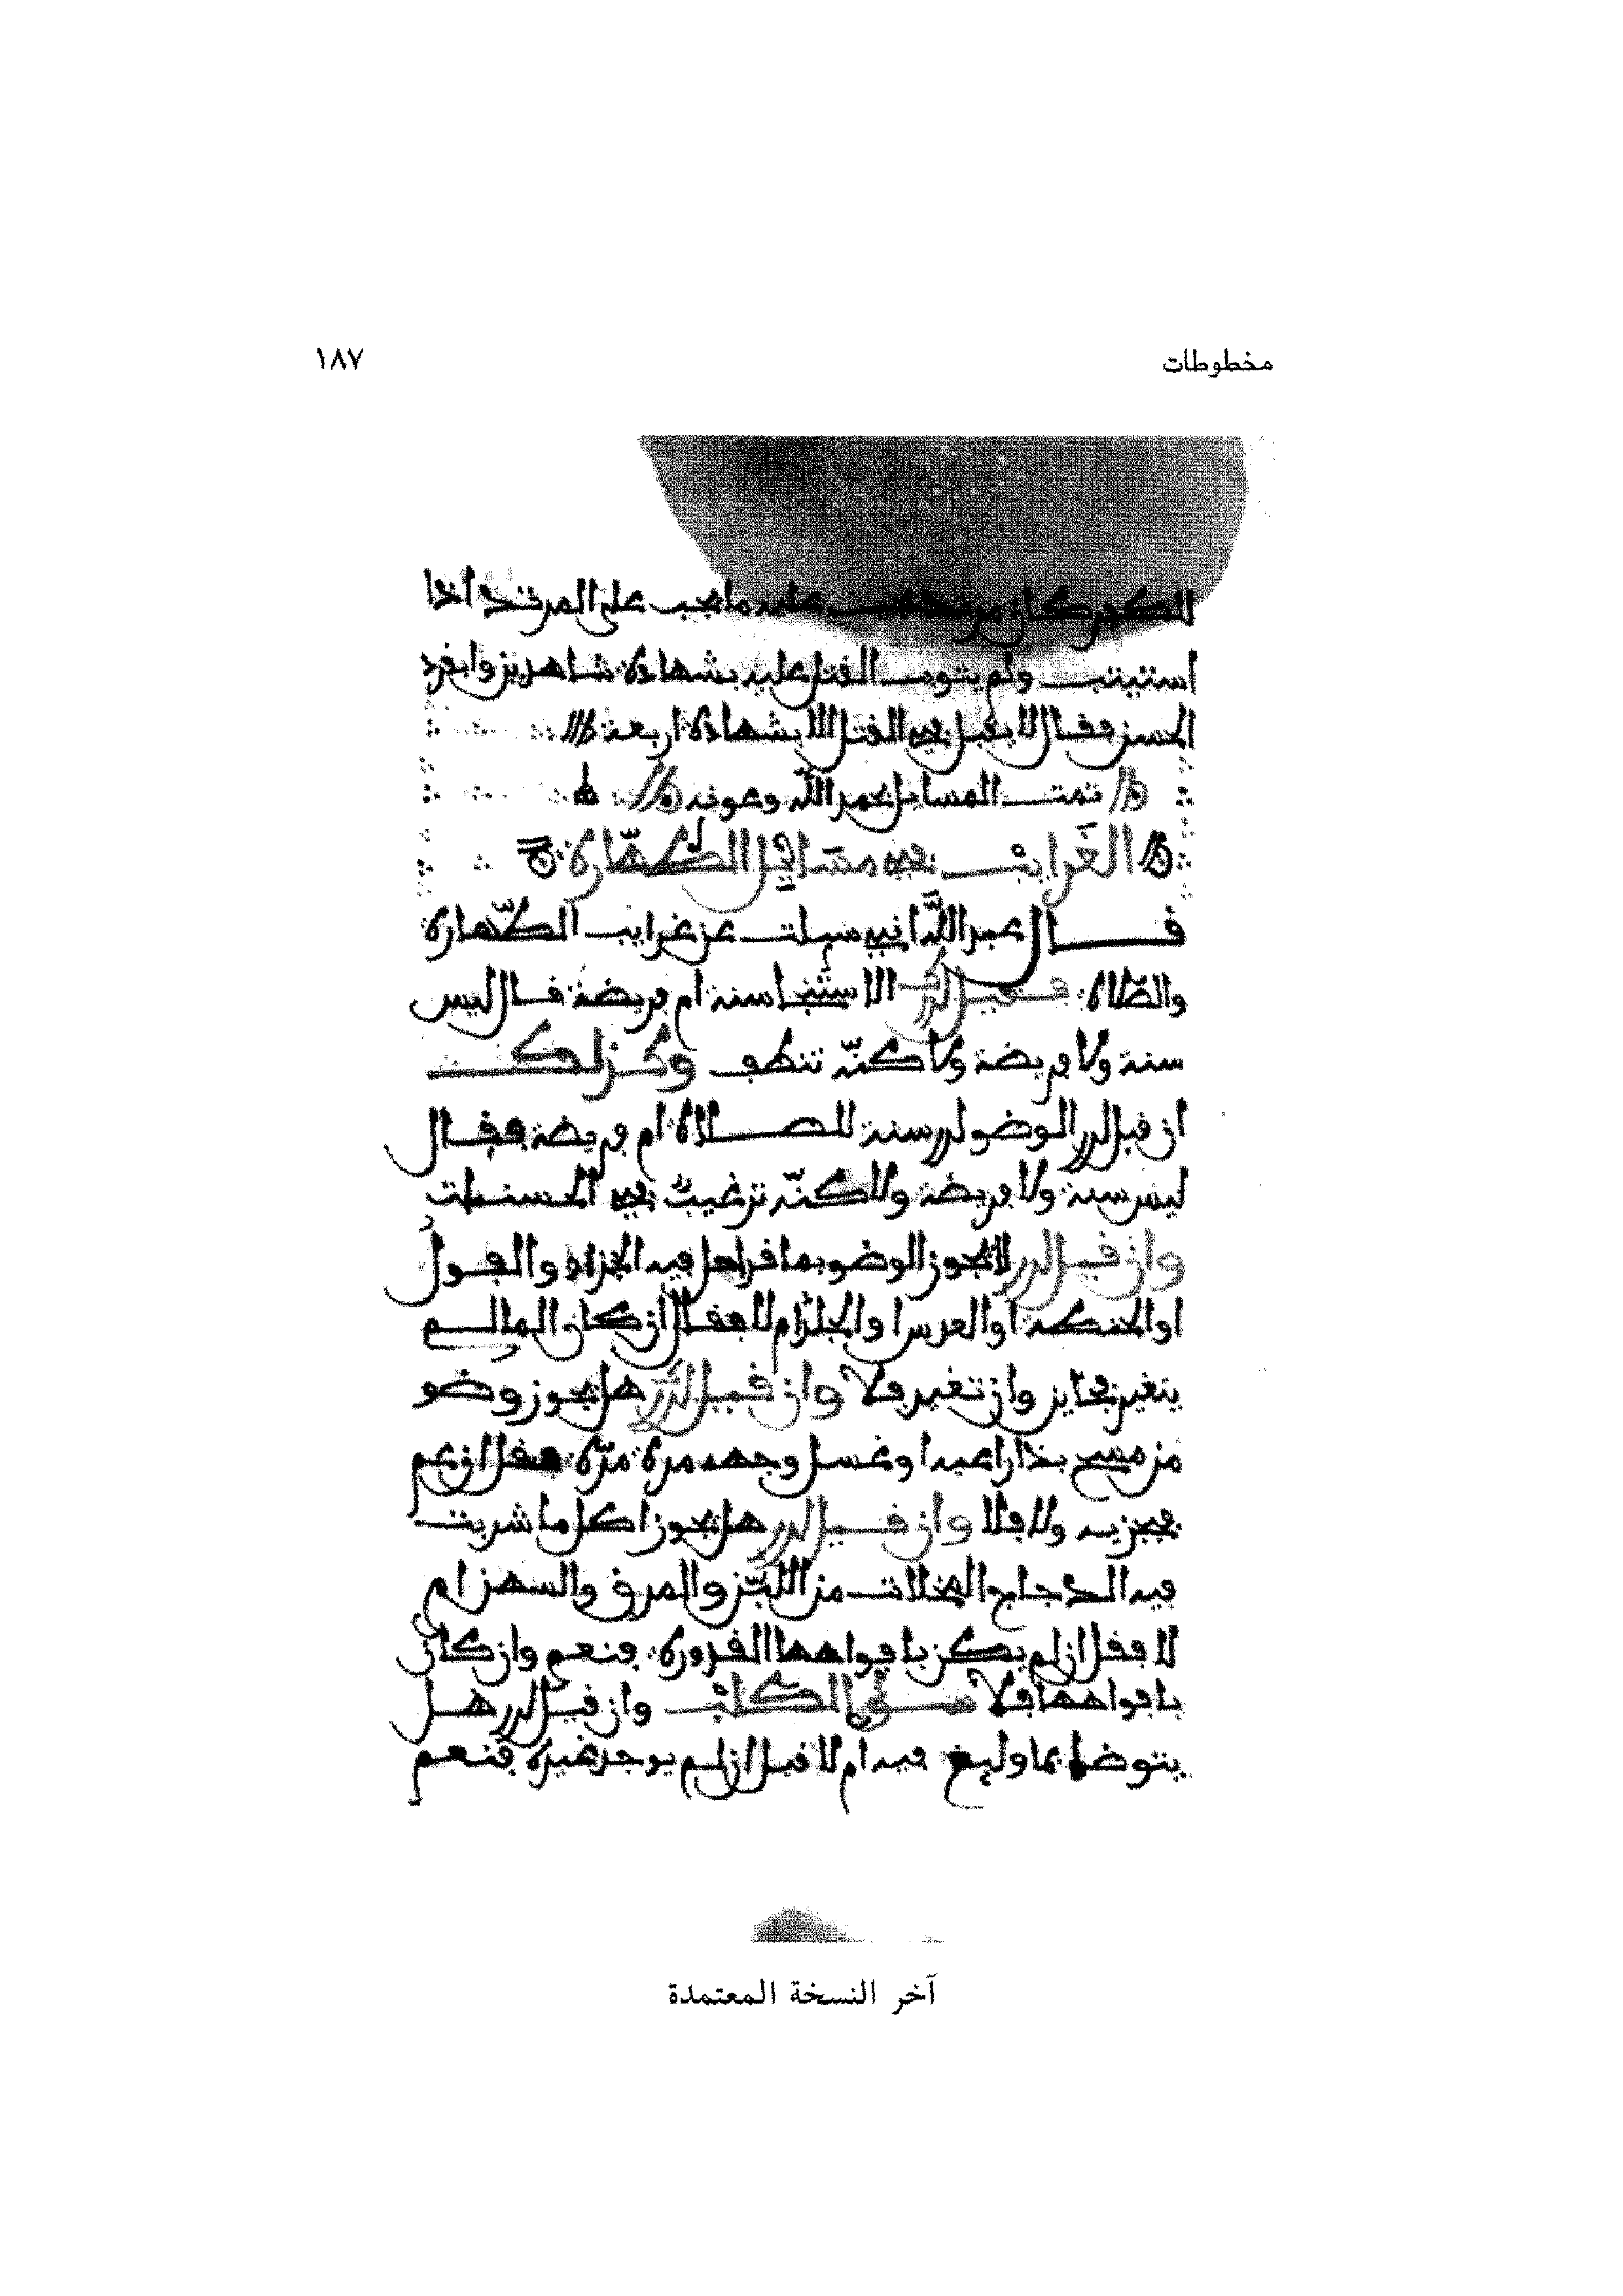 مخطوطات ١٨٧
للكفر كان مرتدا يجب عليه ما يجب على المرتد اذا
استتيب ولم يتوب القتل عليه بشهادة شاهدين وانفرد
الحسن فقال لا يقبل في القتل الا بشهادة اربعة
تمت المسايل بحمد الله وعونه
الغرايب في مسايل الطهارة
قال عبد الله اني سيلت عن غرايب الطهارة
والصلاة فقيل لك الاستنجا سنة ام فريضة قال ليس
سنة ولا فريضة ولاكنه تنظف وكذلك
ان قيل لك الوضو لدر سنة للصلاة ام فريضة فقال
ليس سنة ولا فريضة ولاكنه ترغيب في الحسنات
وان قيل لك لا يجوز الوضو بما قد احل فيه والفول
او او العدس ا لا فقال ان كان الما لم
يتغير فجايز وان تغير فلا وان قيل لك هل يجوز وضو
من مسح وغسل وجهه مرة مرة فقل ان عم
فيجزيه ولا فلا وان قيل لك هل يجوز اكل ما شربت
فيه الدجاج المخلات من اللبن والمرق والسمن ام
لا فقل ان لم يكن بافواهها القذورة فنعم وان كان
بافواهها فلا سؤر الكلب وان قيل لك هل
يتوضا بما ولغ فيه ام لا قيل ان لم يوجد غيره فنعم
آخر النسخة المعتمدة